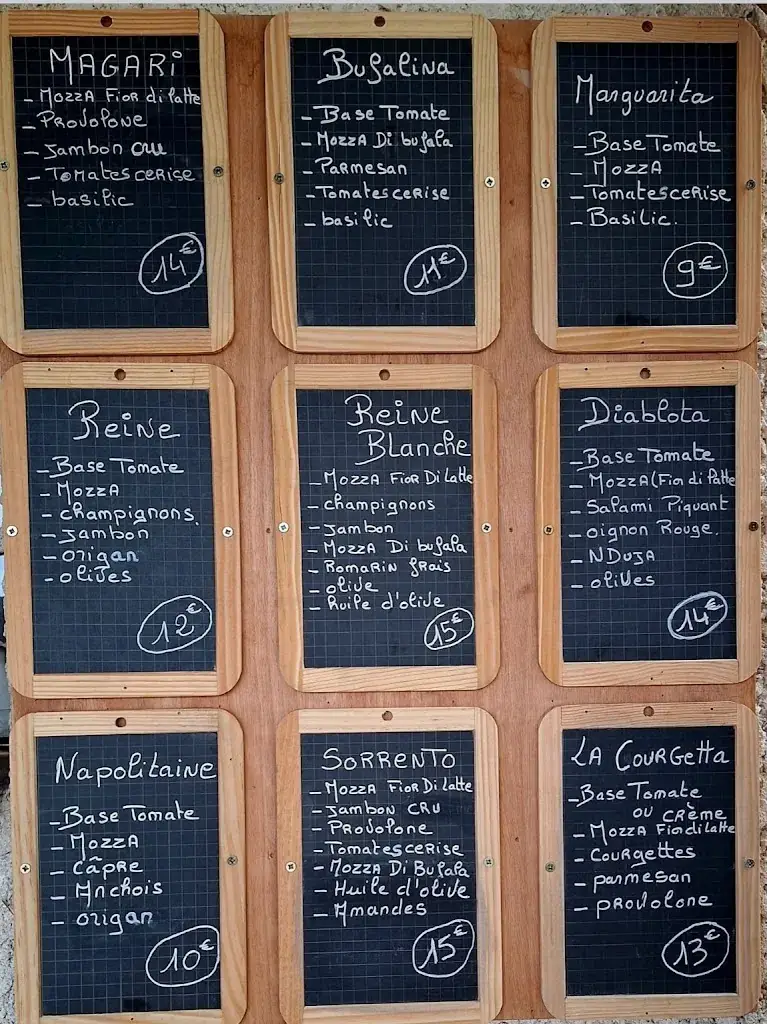 MAGARI
- MOZZA FIOR di latte
- PROVOLONE
- Jambon cru
- TOMATES CERISE
- basilic
14€
Bufalina
- Base Tomate
- MOZZA Di bufala
- PARMESAN
- Tomates cerise
- basilic
11€
Marguarita
- Base Tomate
- MOZZA
- Tomates cerise
- Basilic.
9€
Reine
- Base Tomate
- MOZZA
- champignons.
- Jambon
- origan
- olives
12€
Reine
Blanche
- MOZZA FIOR Di Latte
- champignons
- Jambon
- MOZZA Di bufala
- ROMARIN frais
- olive
- huile d'olive
15€
Diablota
- Base Tomate
- MOZZA (Fior di latte
- Salami Piquant
- oignon Rouge.
- NDUJA
- olives
14€
Napolitaine
- Base Tomate
- MOZZA
- Câpre
- Anchois
- origan
10€
SORRENTO
- MOZZA FIOR Di Latte
- Jambon CRU
- PROVOLONE
- Tomates cerise
- MOZZA Di Bufala
- Huile d'olive
- Amandes
15€
LA COURGETTA
- Base Tomate
ou crème
- MOZZA Fior di latte
- COURGETTES
- parmesan
- provolone
13€